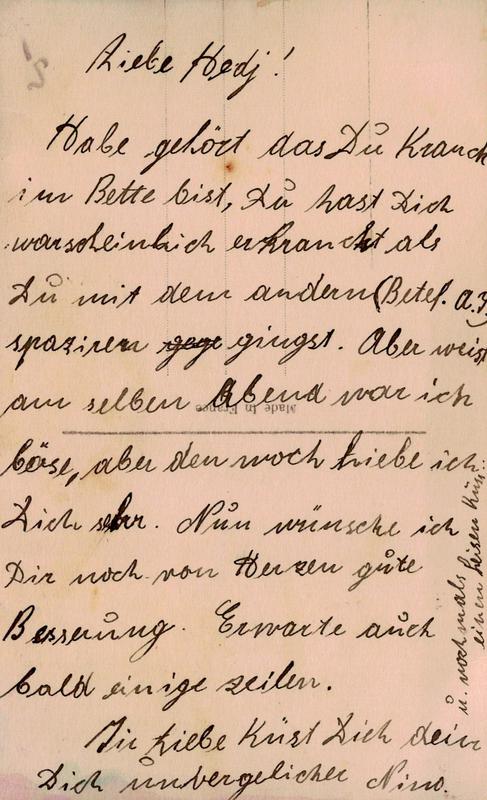 Liebe Hedj!
Habe gehört das Dŭ Kranck
im Bette bist, Dŭ hast Dich
warscheinlich erkranckt als
Dŭ mit dem andern (Betef. a.
spaziren gege gingst. Aber weist
am selben Abend war ich
böse, aber den noch liebe ich
Dich sehr. Nŭn wünsche ich
Dir noch von Herzen gŭte
Besserŭng. Erwarte aŭch
bald einige zeilen.
In liebe Küst Dich dein
Dich ŭnvergelicher Nino.
ŭ. nochmals
einen heisen Küs:
Made in France